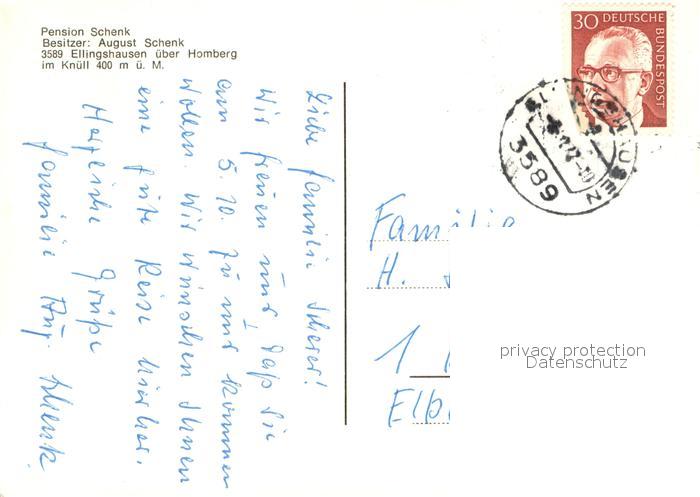 Pension Schenk
Besitzer: August Schenk
3589 Ellingshausen über Homberg
im Knüll 400 m ü. M.
Liebe Familie Scherer!
Wir freuen uns, daß Sie
am 5.10. zu uns kommen
wollen. Wir wünschen Ihnen
eine gute Reise hierher.
Herzliche Grüße
Familie Aug. Schenk.
30 DEUTSCHE
BUNDESPOST
3589
Familie
H.
1
Elb
privacy protection
Datenschutz